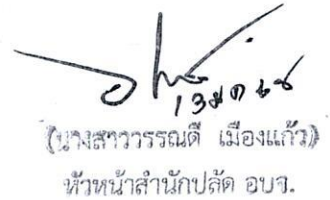 13 มค 68
(นางสาววรรณดี เมืองแก้ว)
หัวหน้าสำนักปลัด อบจ.